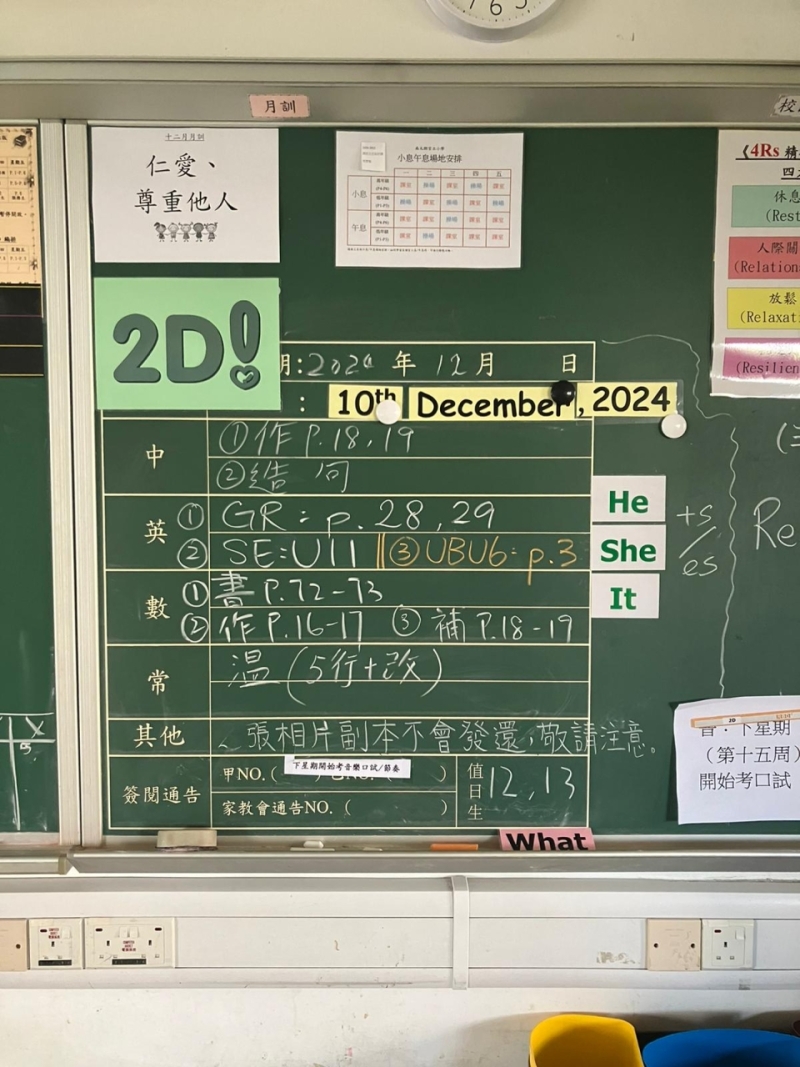 月訓
十二月月訓
仁愛、
尊重他人
小息午息場地安排
一 二 三 四 五
小息
午息
《4Rs 精
四
休息
(Rest
人際關
(Relation
放鬆
(Relaxati
(Resilien
2D!
期:2024 年 12月 日
: 10th December, 2024
中
①作P.18,19
②造句
英
① GR: p. 28, 29
② SE:U11 ③UBU6: p.3
He
She
It
+s
/es
Re
數
①書P.72-73
②作P.16-17 ③補P.18-19
常
溫(5行+改)
其他
~張相片副本不會發還,敬請注意。
簽閱通告
甲NO.( ) NO.( )
下星期開始考音樂口試/節奏
家教會通告NO.( )
值日生
12,13
What
音:下星期
(第十五周)
開始考口試